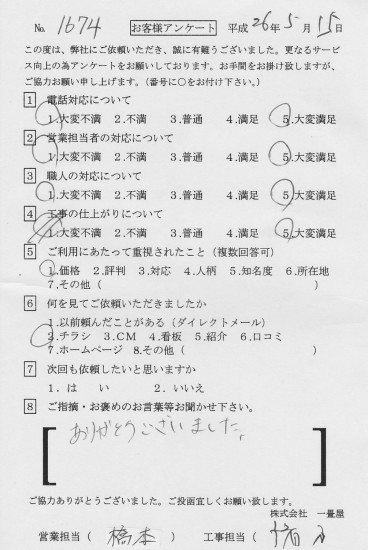 No. 1674 お客様アンケート 平成26年5月15日
この度は、弊社にご依頼いただき、誠に有難うございました。更なるサービ
ス向上の為アンケートをお願いしております。お手間をお掛け致しますが、
ご協力お願い申し上げます。（番号に○をお付け下さい。）
1 電話対応について
1.大変不満 2.不満 3.普通 4.満足 5.大変満足
2 営業担当者の対応について
1.大変不満 2.不満 3.普通 4.満足 5.大変満足
3 職人の対応について
1.大変不満 2.不満 3.普通 4.満足 5.大変満足
4 工事の仕上がりについて
1.大変不満 2.不満 3.普通 4.満足 5.大変満足
5 ご利用にあたって重視されたこと（複数回答可）
1.価格 2.評判 3.対応 4.人柄 5.知名度 6.所在地
7.その他（ ）
6 何を見てご依頼いただきましたか
1.以前頼んだことがある（ダイレクトメール）
2.チラシ 3.CM 4.看板 5.紹介 6.口コミ
7.ホームページ 8.その他（ ）
7 次回も依頼したいと思いますか
1．は い 2．いいえ
8 ご指摘・お褒めのお言葉等お聞かせ下さい。
ありがとうございました。
ご協力ありがとうございました。ご投函宜しくお願い致します。
株式会社 一畳屋
営業担当（ 橋本 ） 工事担当（ ）